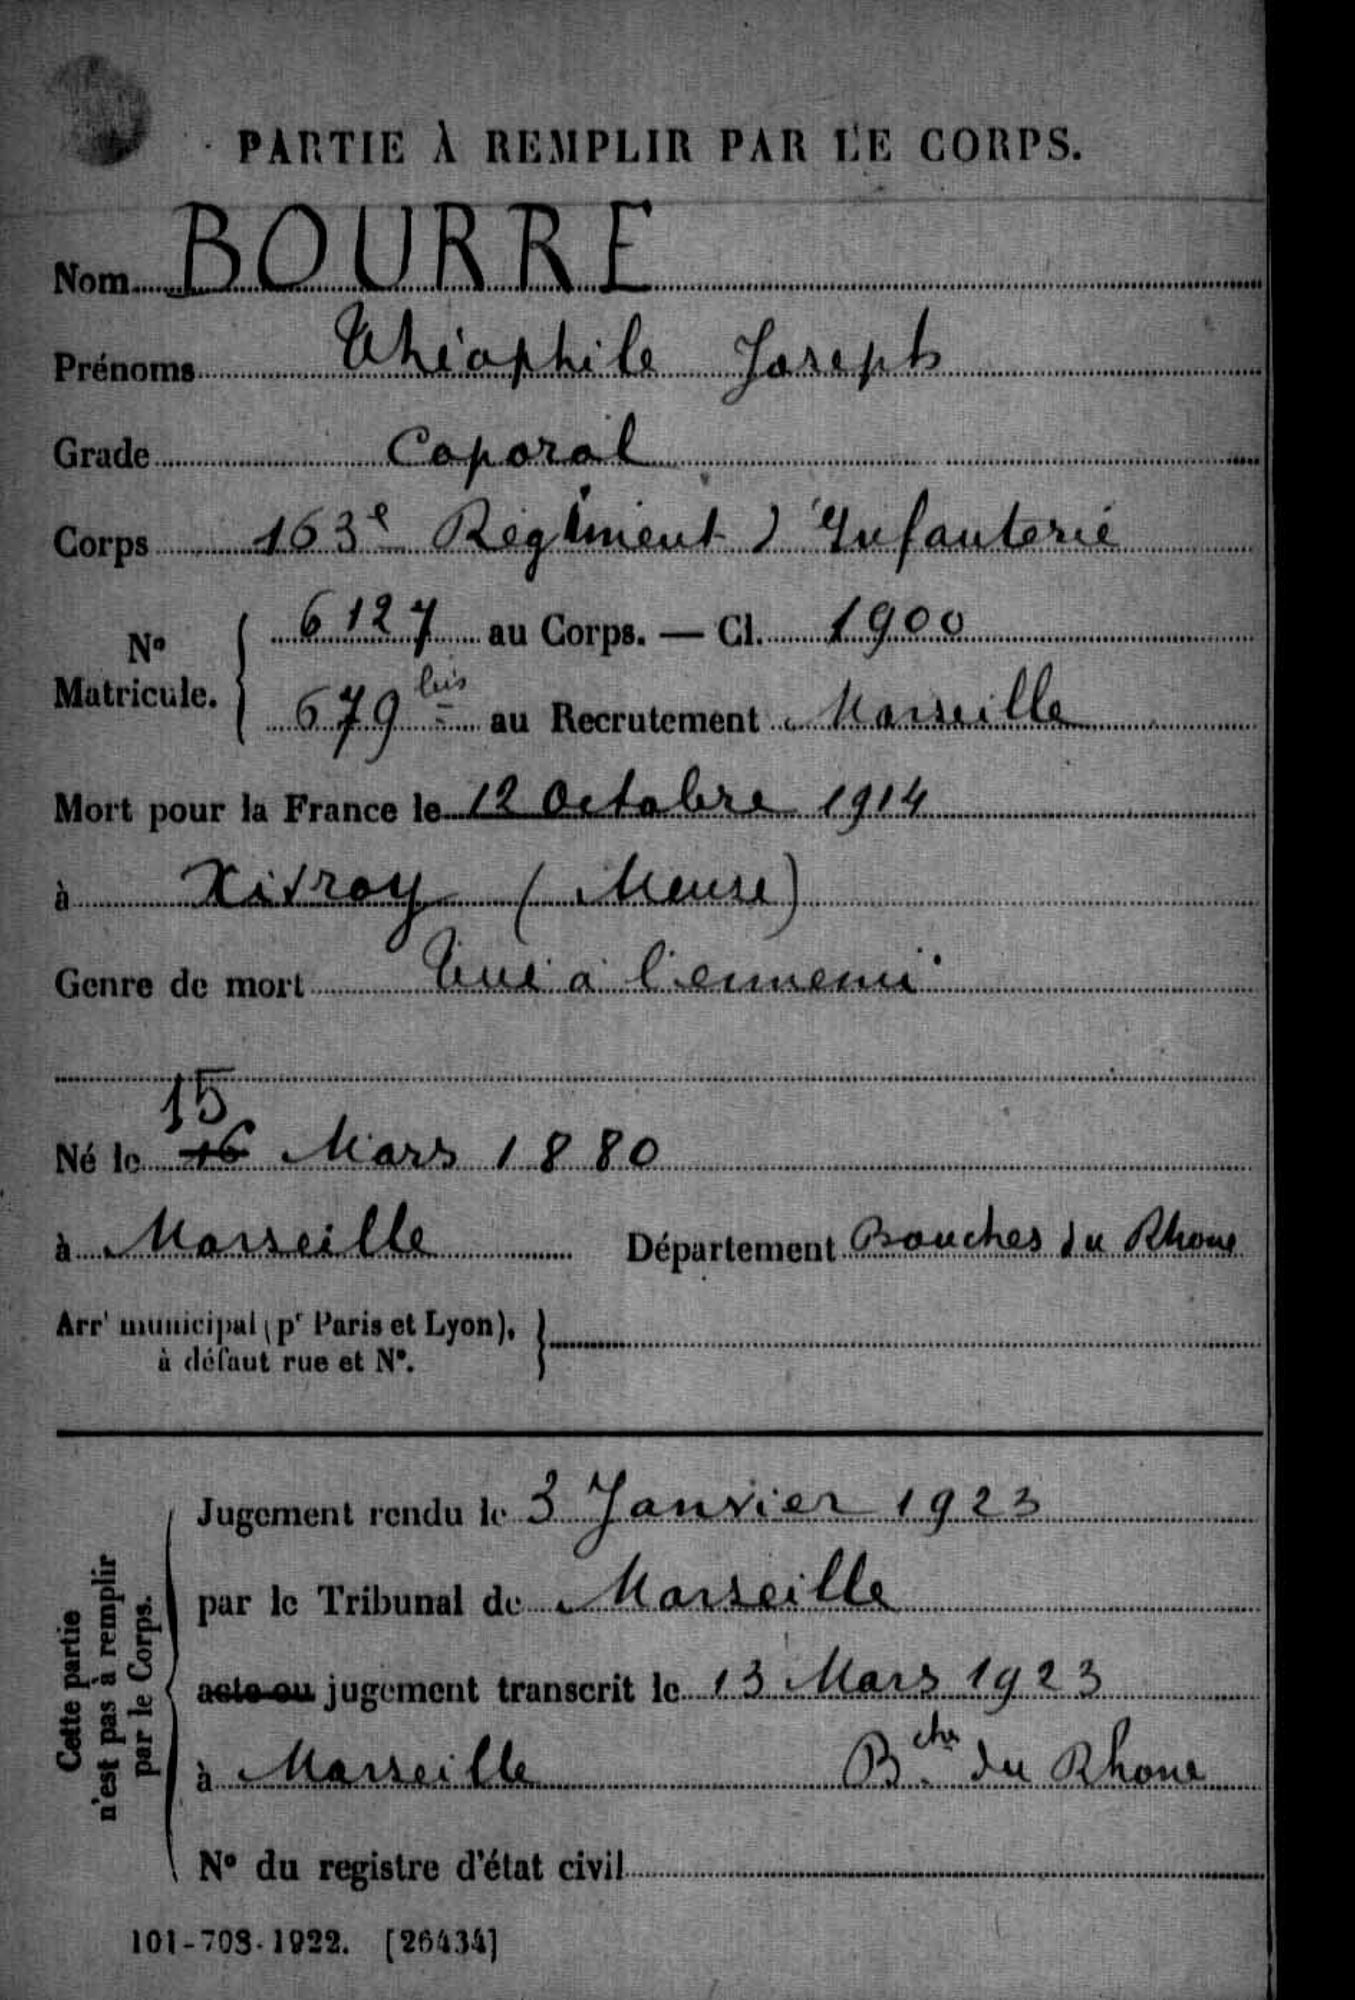 PARTIE À REMPLIR PAR LE CORPS.
Nom BOURRE
Prénoms Théophile Joseph
Grade Caporal
Corps 163e Régiment d'Infanterie
No Matricule. { 6127 au Corps. — Cl. 1900
679 bis au Recrutement Marseille
Mort pour la France le 12 Octobre 1914
à Xivray (Meuse)
Genre de mort Tué à l'ennemi
15
Né le 16 Mars 1880
à Marseille Département Bouches du Rhone
Arrt municipal (pr Paris et Lyon), }
à défaut rue et No.
Cette partie
n'est pas à remplir
par le Corps.
Jugement rendu le 3 Janvier 1923
par le Tribunal de Marseille
acte ou jugement transcrit le 13 Mars 1923
à Marseille Bches du Rhone
No du registre d'état civil
101-708-1922. [26434]